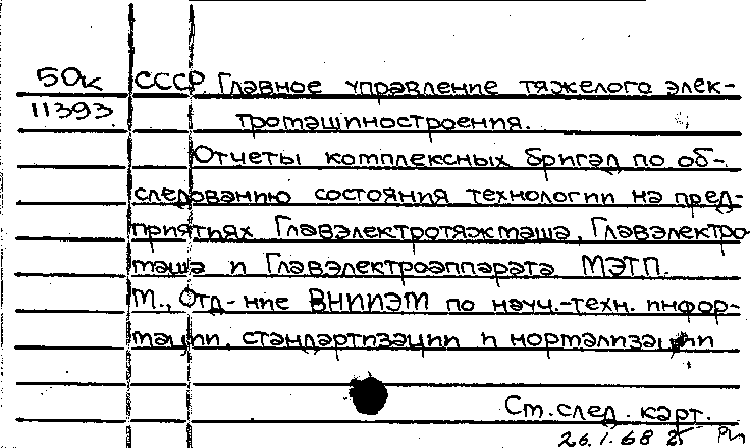 50к СССР. Главное управление тяжелого элек-
11393. тромашиностроения.
Отчеты комплексных бригад по об-
следованию состояния технологии на пред-
приятиях Главэлектротяжмаша, Главэлектро
маша и Главэлектроаппарата МЭТП.
М., Отд-ние ВНИИЭМ по науч.-техн. инфор-
мации, стандартизации и нормализации
См. след. карт.
26.1.68